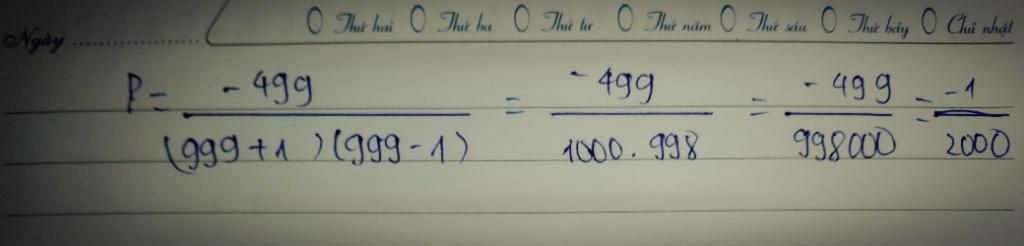 Ngày .................... Thứ hai Thứ ba Thứ tư Thứ năm Thứ sáu Thứ bảy Chủ nhật
P = -499 / (999+1)(999-1) = -499 / 1000.998 = -499 / 998000 = -1 / 2000